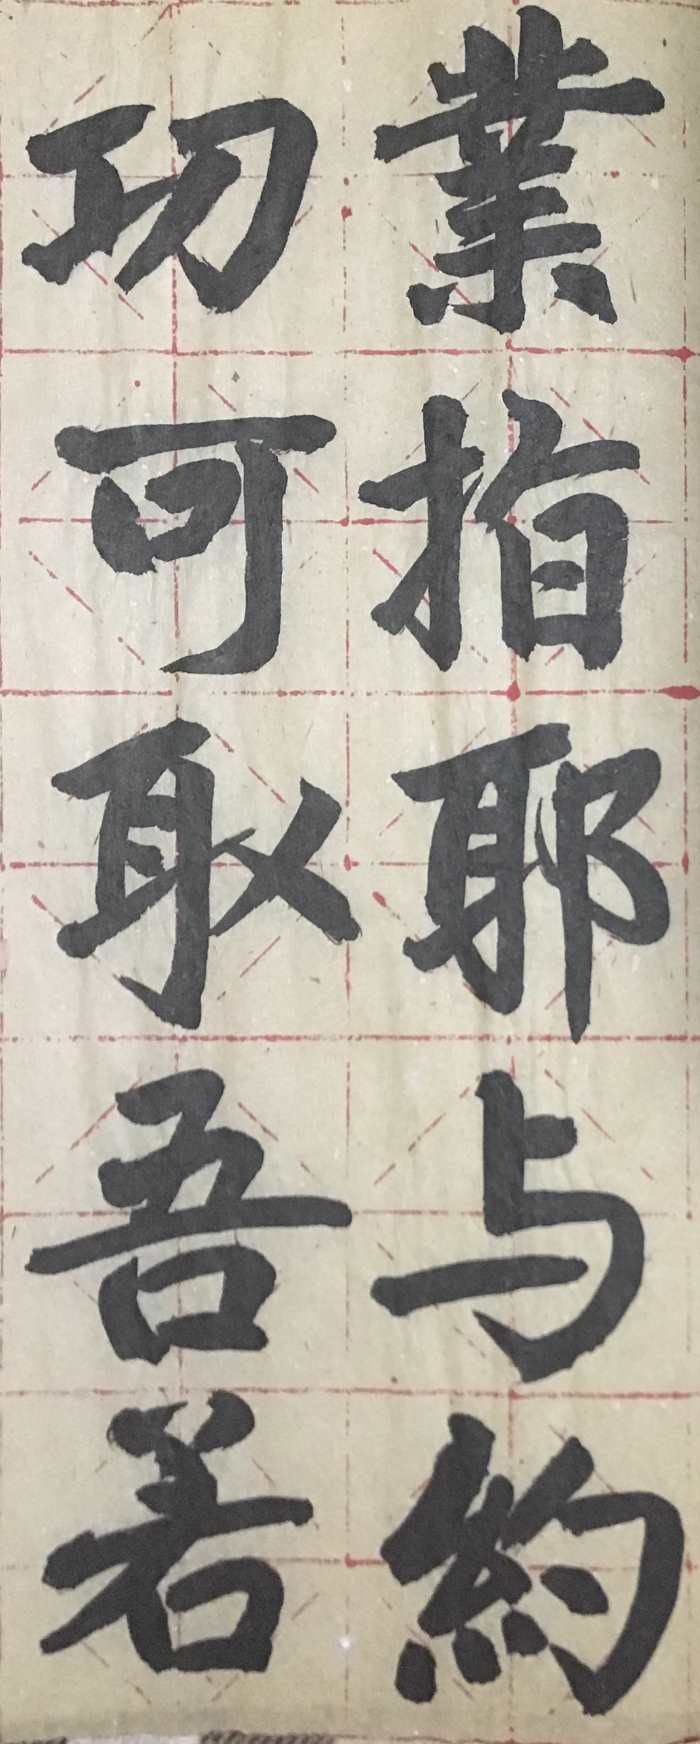 業指耶与約
功可取吾若